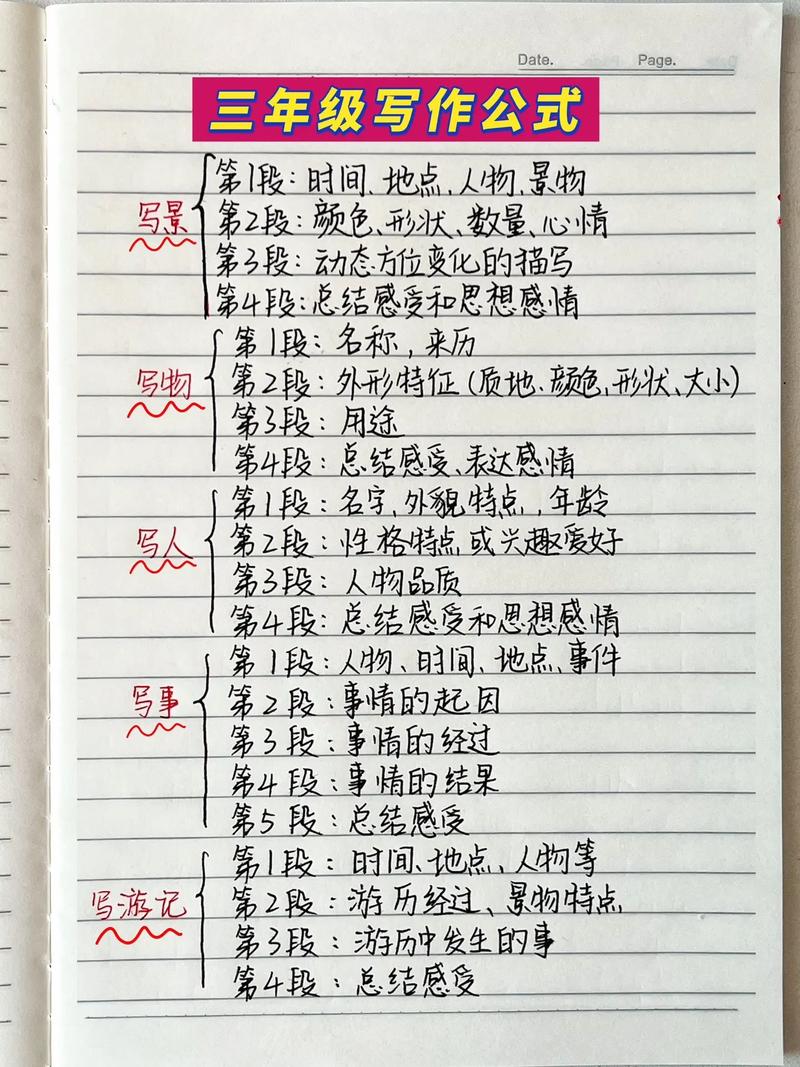 Date. Page.
三年级写作公式
写景
第1段：时间、地点、人物、景物
第2段：颜色、形状、数量、心情
第3段：动态方位变化的描写
第4段：总结感受和思想感情
写物
第1段：名称，来历
第2段：外形特征（质地、颜色、形状、大小）
第3段：用途
第4段：总结感受、表达感情
写人
第1段：名字，外貌特点，年龄
第2段：性格特点或兴趣爱好
第3段：人物品质
第4段：总结感受和思想感情
写事
第1段：人物、时间、地点、事件
第2段：事情的起因
第3段：事情的经过
第4段：事情的结果
第5段：总结感受
写游记
第1段：时间、地点、人物等
第2段：游历经过、景物特点
第3段：游历中发生的事
第4段：总结感受